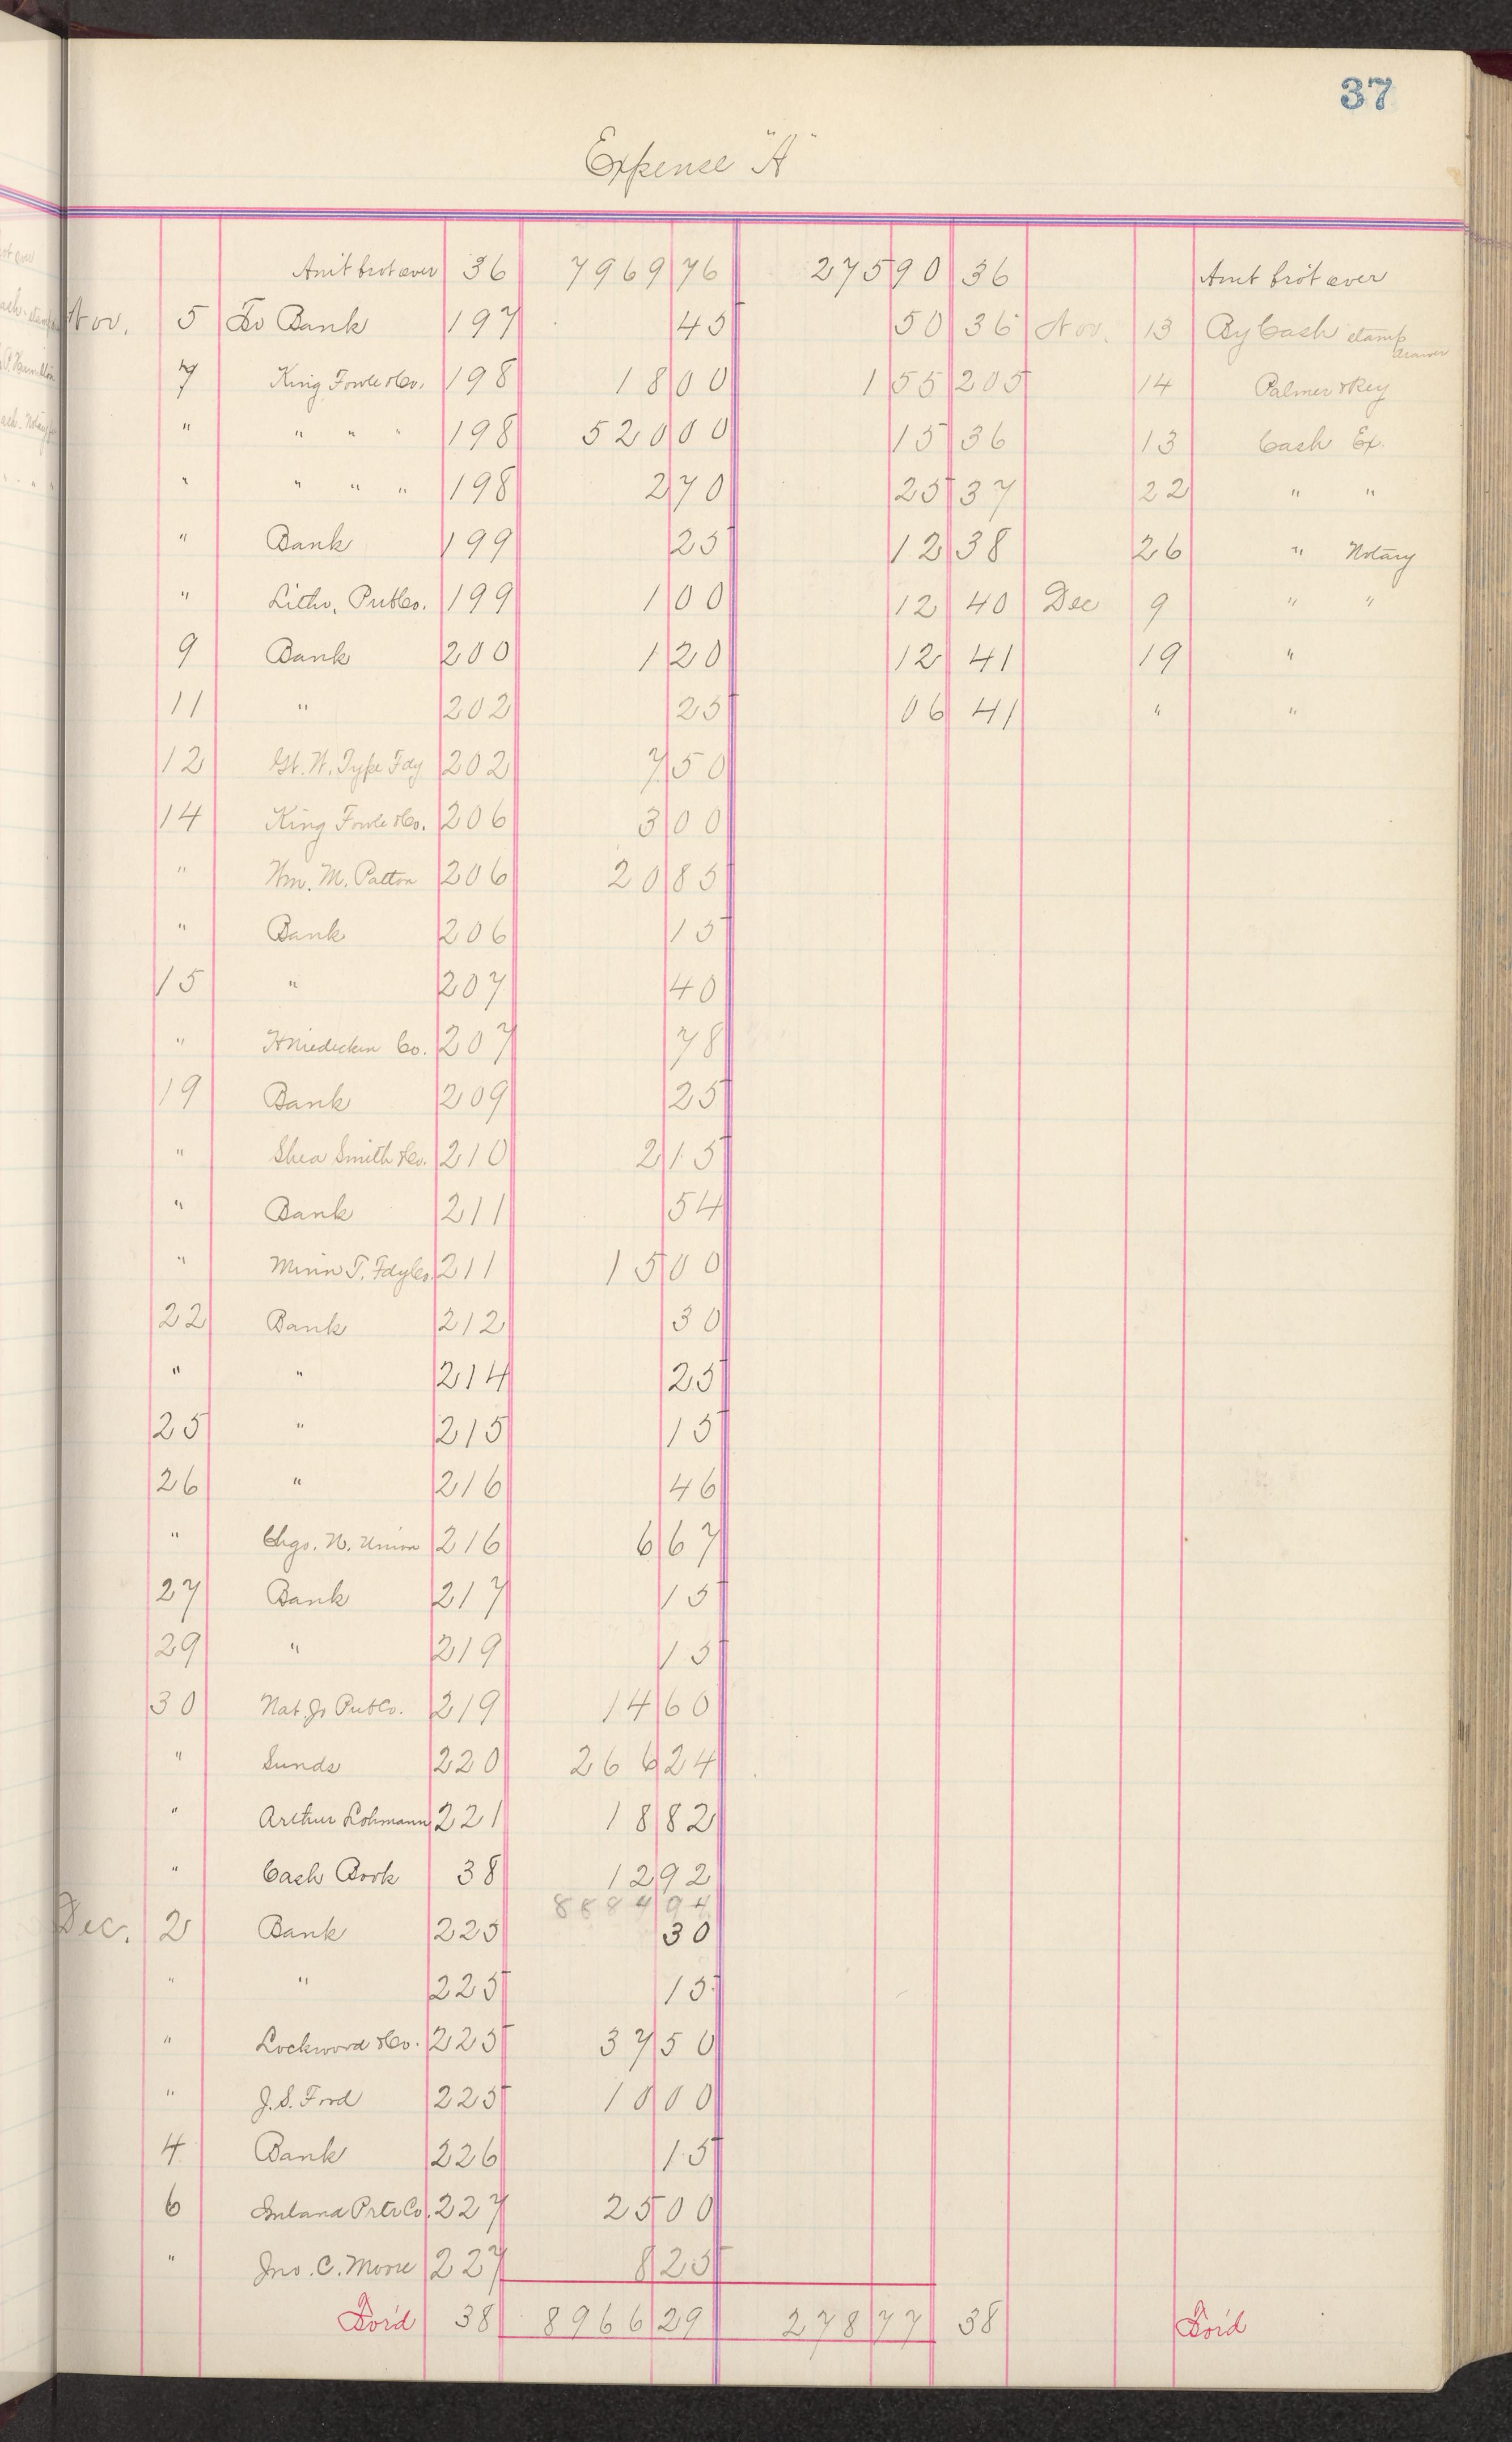 37
Expense "A"
Am't brot over 36 7969 76 275 90 36 Amt brot over
Nov. 5 To Bank 197 45 50 36 Nov. 13 By Cash stamp drawer
7 King Fowle & Co. 198 18 00 1 55 205 14 Palmer & Rey
" " " " 198 520 00 15 36 13 Cash Ex.
" " " " 198 2 70 25 37 22 " "
" Bank 199 25 12 38 26 " Notary
" Litho. Pub Co. 199 1 00 12 40 Dec 9 " "
9 Bank 200 1 20 12 41 19 "
11 " 202 25 06 41 " "
12 Gt. W. Type Fdy 202 7 50
14 King Fowle & Co. 206 3 00
" Wm. M. Patton 206 20 85
" Bank 206 15
15 " 207 40
" H Niedecken Co. 207 78
19 Bank 209 25
" Shea Smith & Co. 210 2 15
" Bank 211 54
" Minn T. Fdy Co. 211 15 00
22 Bank 212 30
" " 214 25
25 " 215 15
26 " 216 46
" Chgo. N. Union 216 6 67
27 Bank 217 15
29 " 219 15
30 Nat. Jr Pub Co. 219 14 60
" Sunds 220 266 24
" Arthur Lohmann 221 18 82
" Cash Book 38 12 92
8884 94
Dec. 2 Bank 225 30
" " 225 15
" Lockwood & Co. 225 37 50
" J. S. Ford 225 10 00
4 Bank 226 15
6 Inland Prtr Co. 227 25 00
" Jno. C. Moore 227 8 25
For'd 38 8966 29 278 77 38 For'd